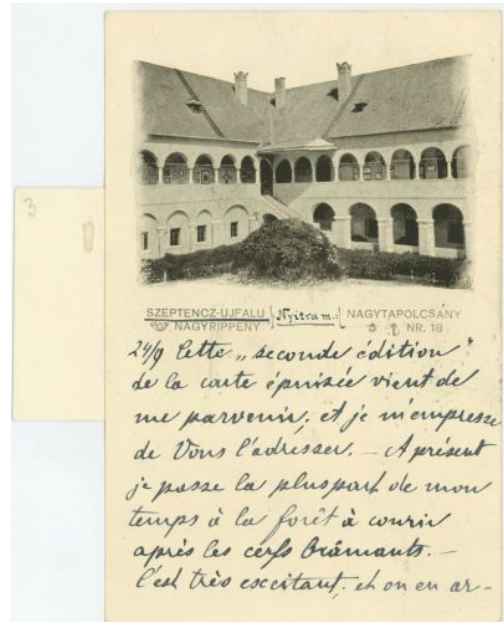 3
SZEPTENCZ-UJFALU
NAGYRIPPENY
Nyitra m.:
NAGYTAPOLCSÁNY
NR. 18
24/9 Cette „seconde édition"
de la carte épuisée vient de
me parvenir, et je m'empresse
de Vous l'adresser. — A présent
je passe la pluspart de mon
temps à la forêt à courir
après les cerfs brâmants. —
C'est très excitant, et on en ar-